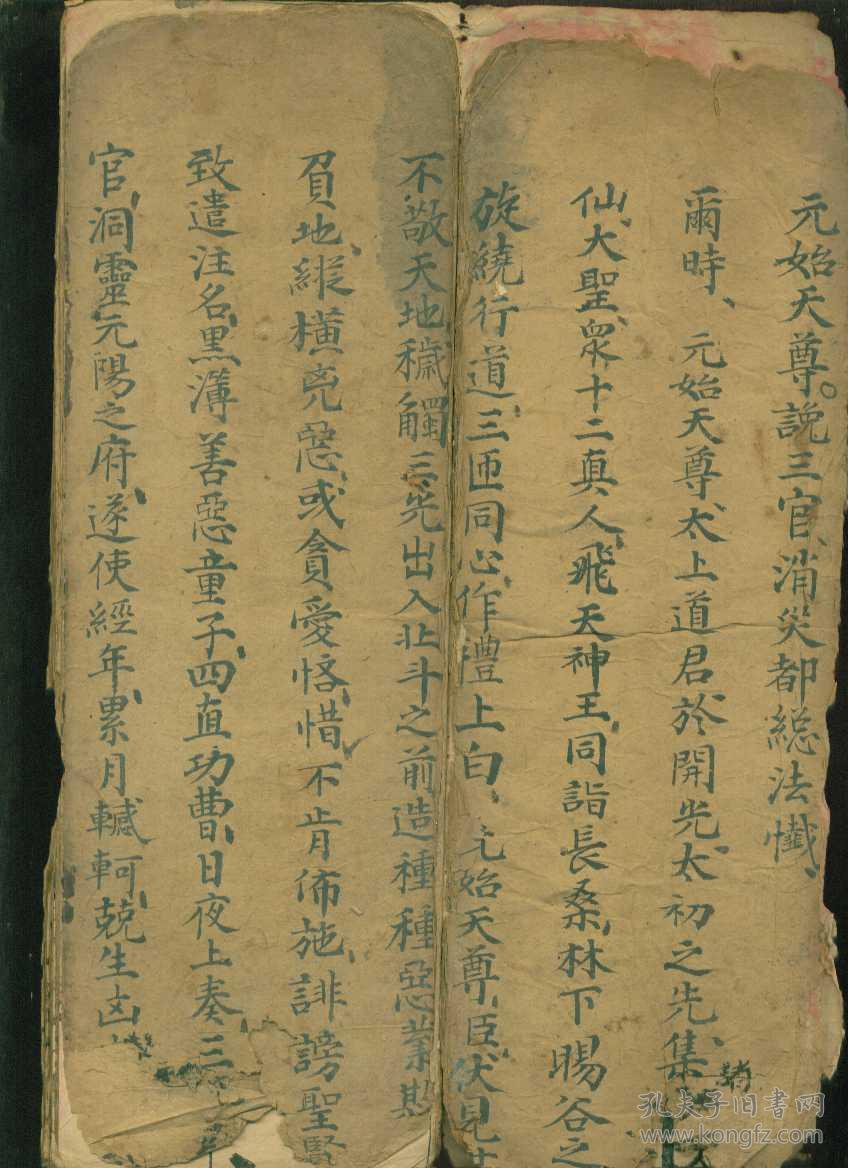 元始天尊。説三官、消災都総法懺、
爾時、元始天尊、太上道君、於開光、太初之先、集諸
仙、大聖衆、十二真人、飛天神王、同詣長桑林下、暘谷之
旋繞行道、三匝同心、作禮上白、元始天尊、臣伏見
不敬天地、穢觸三光、出入北斗之前、造種種惡業、欺
負地、縱橫兇惡、或貪愛悋惜、不肯佈施、誹謗聖賢
致遣注名、黑薄善惡童子、四直功曹、日夜上奏、三
官、洞靈元陽之府、遂使經年、累月轗軻、兢生凶
孔夫子旧书网
www.kongfz.com